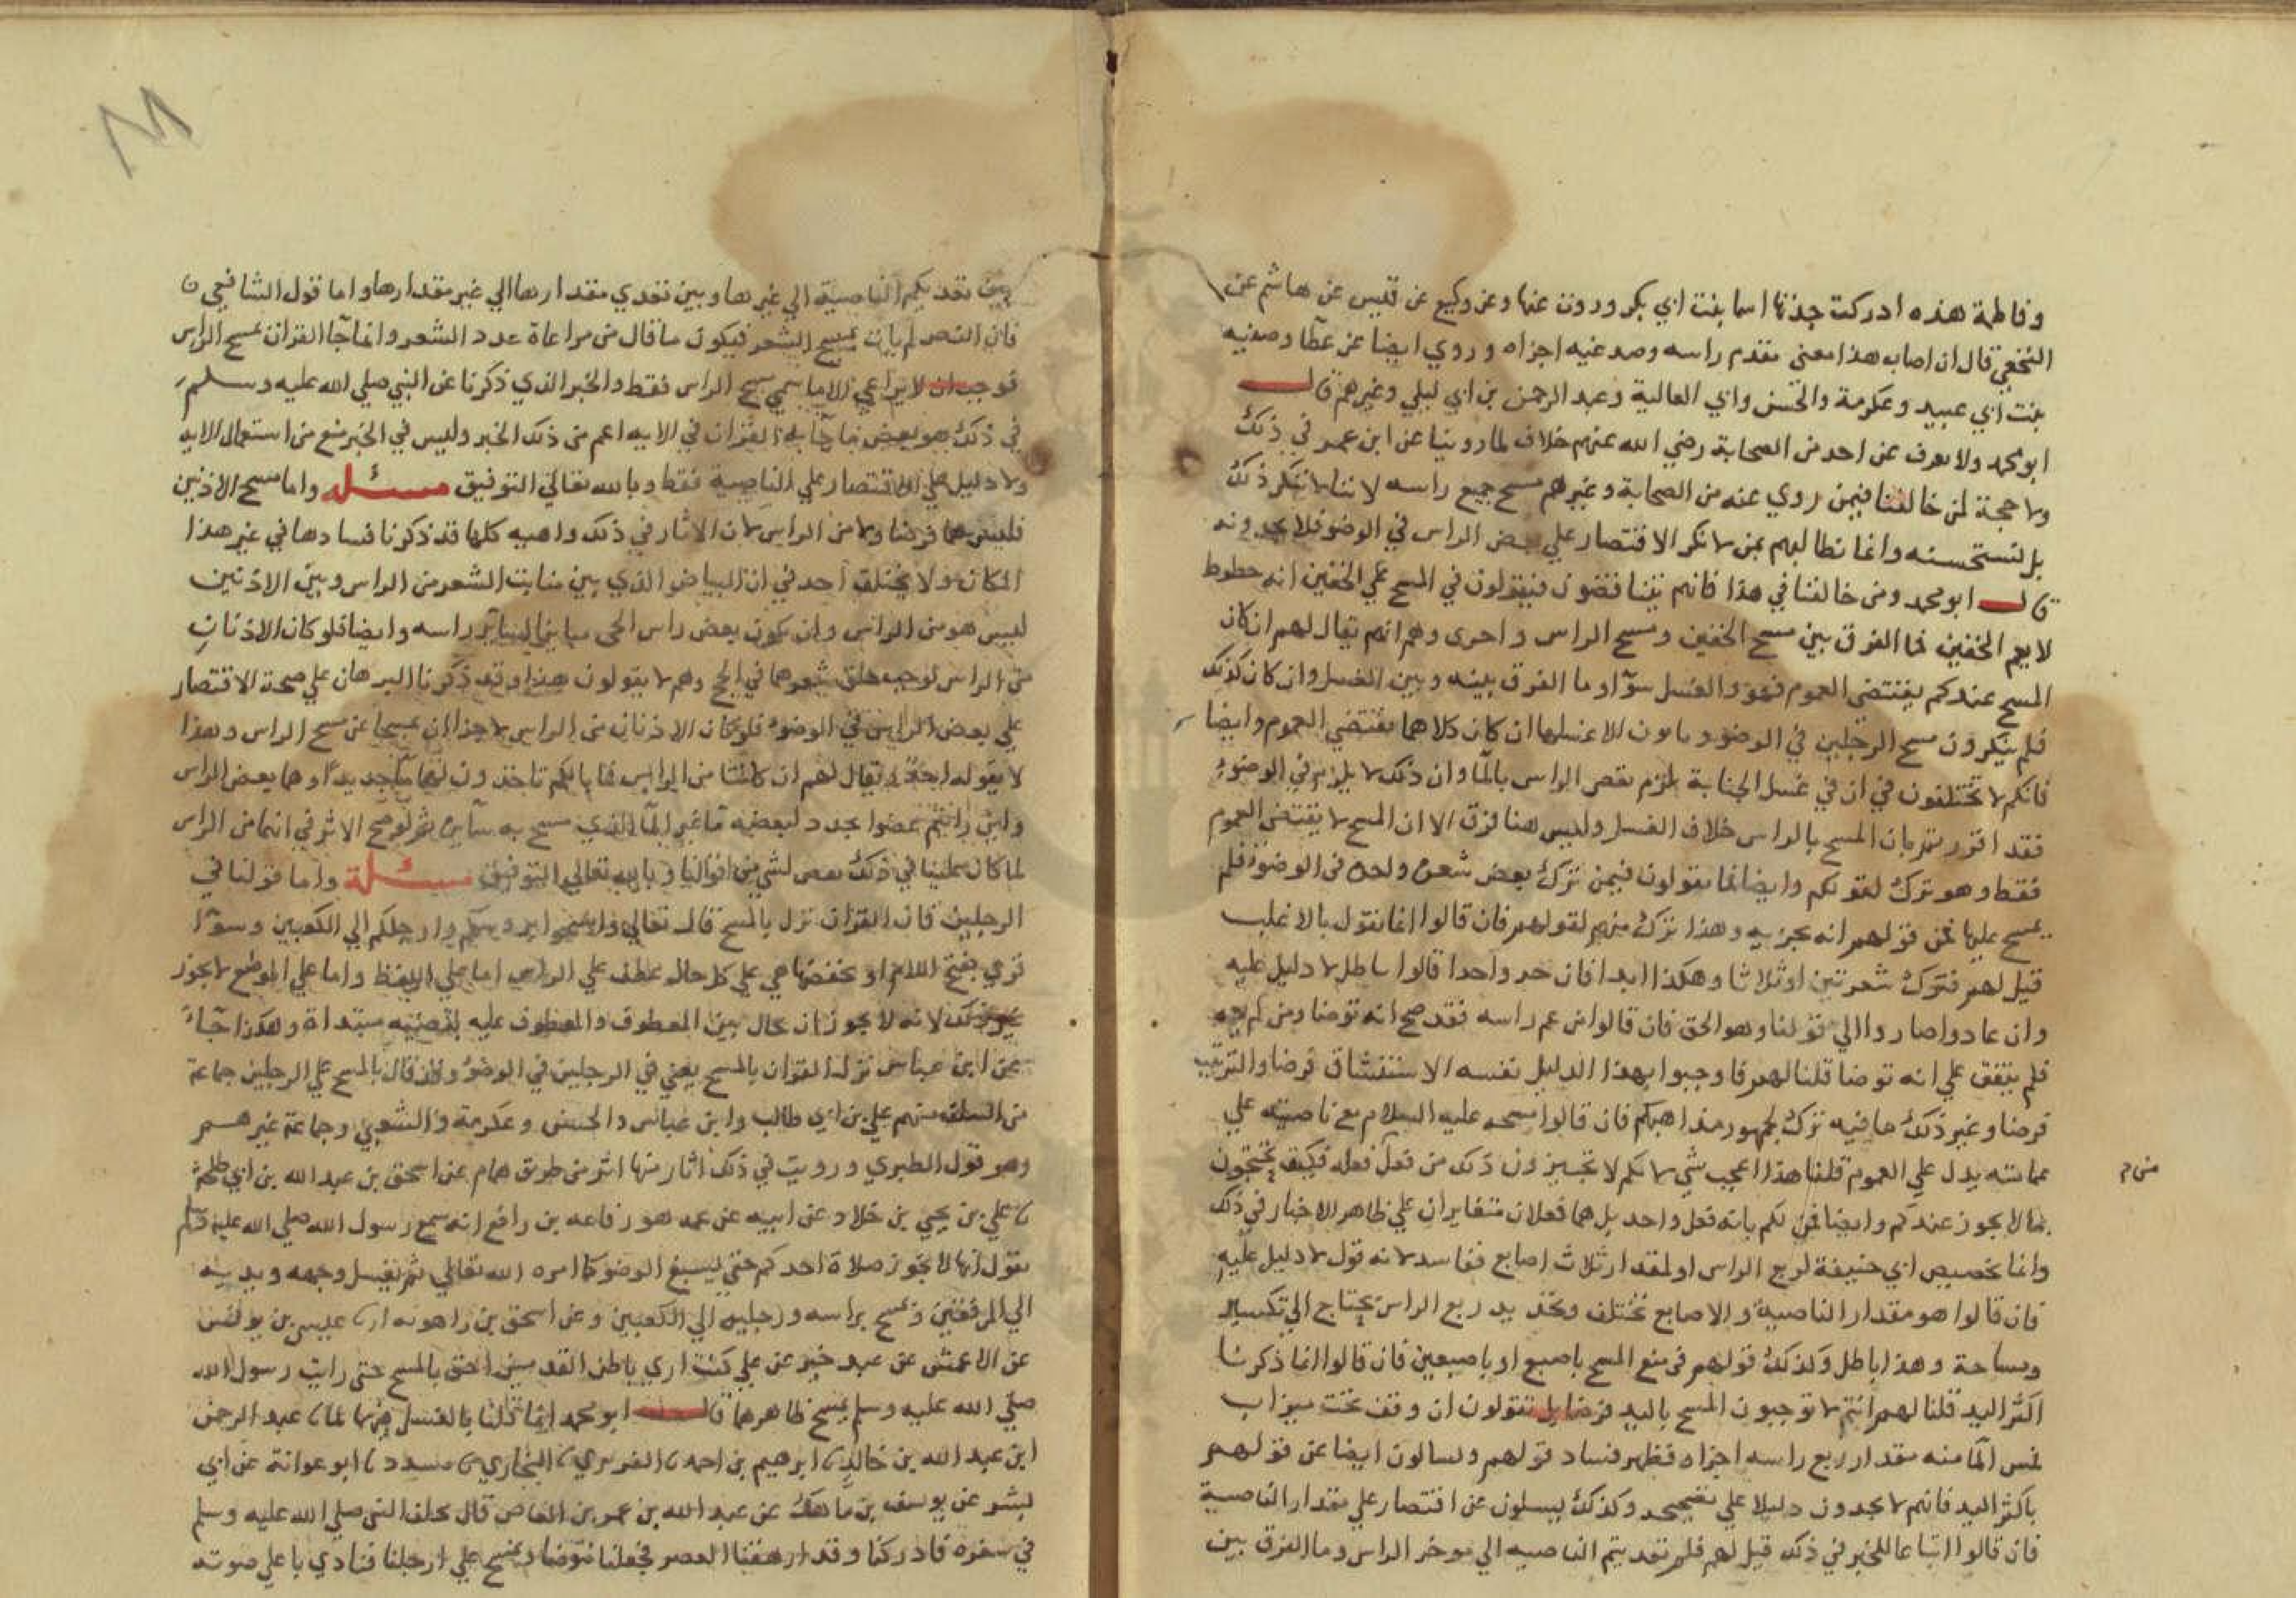 وفاطمة هذه ادركت جدتها اسما بنت ابي بكر وروت عنها وعن وكيع عن قيس عن هاشم عن
النخعي قال ان اصاب هذا معنى مقدم راسه وصدغيه اجزاه وروي ايضا عن عطا وصفيه
بنت ابي عبيد وعكرمة والحسن وابي العالية وعبد الرحمن بن ابي ليلي وغيرهم قال
ابو محمد ولا يعرف عن احد من الصحابة رضي الله عنهم خلاف لما روينا عن ابن عمر في ذلك
ولا حجة لمن خالفنا فيمن روي عنه من الصحابة وغيرهم مسح جميع راسه لاننا لا ننكر ذلك
بل نستحسنه وانما نطالبهم بمن انكر الاقتصار علي بعض الراس في الوضو فلا يجدونه
قال ابو محمد ومن خالفنا في هذا فانهم يتناقضون فيقولون في المسح علي الخفين انه خطوط
لا يعم الخفين فما الفرق بين مسح الخفين ومسح الراس واحرى وهم انهم يقال لهم ان كان
المسح عندكم يقتضي العموم فهو والغسل سوآ وما الفرق بينه وبين الغسل وان كان كذلك
فلم تنكرون مسح الرجلين في الوضو وتابون الا غسلهما ان كان كلاهما يقتضي العموم وايضا
فانكم لا تختلفون في ان في غسل الجنابة يلزم بقص الراس بالمآ وان ذلك لا يلزم في الوضوء
فقد اقررتم بان المسح بالراس خلاف الغسل وليس هنا فرق الا ان المسح لا يقتضي العموم
فقط وهو ترك لقولكم وايضا فما تقولون فيمن ترك بعض شعرة واحدة في الوضوء فلم
يمسح عليها فمن قولهم انه يجزيه وهذا ترك منهم لقولهم فان قالوا انما نقول بالاغلب
قيل لهم فترك شعرتين او ثلاثا وهكذا ابدا فان حد واحدا قالوا باطل لا دليل عليه
وان عادوا صاروا الي قولنا وهو الحق فان قالوا من عم راسه فقد صح انه توضا ومن لم يعمه
فلم يتفق علي انه توضا قلنا لهم فاوجبوا بهذا الدليل نفسه الاستنشاق فرضا والترتيب
فرضا وغير ذلك مما فيه ترك لجمهور مذاهبكم فان قالوا مسحه عليه السلام مع ناصيته علي
عمامته يدل علي العموم قلنا هذا اعجب شي لانكم لا تجيزون ذلك من فعل فعله فكيف تحتجون
من م
بما لا يجوز عندكم وايضا فمن لكم بانه فعل واحد بل هما فعلان متغايران علي ظاهر الاخبار في ذلك
وانما تخصيص ابي حنيفة لربع الراس او لمقدار ثلاث اصابع ففاسد لانه قول لا دليل عليه
فان قالوا هو مقدار الناصية والاصابع تختلف وتحديد ربع الراس يحتاج الي تكسير
ومساحة وهذا باطل وكذلك قولهم في منع المسح باصبع او باصبعين فان قالوا انما ذكرنا
اكثر اليد قلنا لهم انتم لا توجبون المسح باليد فرضا بل تقولون ان وقف تحت ميزاب
فمس المآ منه مقدار ربع راسه اجزاه فظهر فساد قولهم ويسالون ايضا عن قولهم
باكثر اليد فانهم لا يجدون دليلا علي تصحيحه وكذلك يسلون عن اقتصار علي مقدار الناصية
فان قالوا اتباعا للخبر في ذلك قيل لهم فلم تعديتم الناصيه الي موخر الراس وما الفرق بين
بين تعديكم الناصية الي غيرها وبين تعدي مقدارها الي غير مقدارها واما قول الشافعي ن
فان النص لم يات بمسح الشعر فيكون ما قال من مراعاة عدد الشعر وانما جآ القران بمسح الراس
فوجب ان لا يراعي الا ما سمي مسح الراس فقط والخبر الذي ذكرنا عن النبي صلي الله عليه وسلم
في ذلك هو بعض ما جآ به القران في الايه اعم من ذلك الخبر وليس في الخبر منع من استعمال الايه
ولا دليل علي الاقتصار علي الناصية فقط وبالله تعالي التوفيق مسئله واما مسح الاذنين
فليس هما فرضا ولا من الراس لان الاثار في ذلك واهيه كلها قد ذكرنا فسادها في غير هذا
المكان ولا يختلف احد في ان البياض الذي بين منابت الشعر من الراس وبين الاذنين
ليس هو من الراس وان يكون بعض راس الحي مباينا لسائر راسه وايضا فلو كان الاذنان
من الراس لوجب حلق شعرهما في الحج وهم لا يقولون هذا وقد ذكرنا البرهان علي صحة الاقتصار
علي بعض الراس في الوضوء فلو كان الاذنان من الراس لاجزا ان يمسحا عن مسح الراس وهذا
لا يقوله احد ويقال لهم ان كانتا من الراس فما بالكم تاخذون لهما مآ جديدا وهما بعض الراس
واين رايتم عضوا يجدد لبعضه مآ غير المآ الذي مسح به سآيره ثم لو صح الاثر في انهما من الراس
لما كان علينا في ذلك نقص لشي من اقوالنا وبالله تعالي التوفيق مسئلة واما قولنا في
الرجلين فان القران نزل بالمسح قال تعالي وامسحوا بروسكم وارجلكم الي الكعبين وسوآ
قري بفتح اللام او بخفضها هي علي كل حال عطف علي الراس اما علي اللفظ واما علي الموضع لا يجوز
غير ذلك لانه لا يجوز ان يحال بين المعطوف والمعطوف عليه بقضيه مبتداة وهكذا جآء
عن ابن عباس نزل القران بالمسح يعني في الرجلين في الوضوء وقد قال بالمسح علي الرجلين جماعة
من السلف منهم علي بن ابي طالب وابن عباس والحسن وعكرمة والشعبي وجماعة غيرهم
وهو قول الطبري ورويت في ذلك اثار منها اثر من طريق همام عن اسحق بن عبد الله بن ابي طلحة
نا علي بن يحيي بن خلاد عن ابيه عن عمه هو رفاعه بن رافع انه سمع رسول الله صلي الله عليه وسلم
يقول انها لا تجوز صلاة احدكم حتي يسبغ الوضو كما امره الله تعالي ثم يغسل وجهه ويديه
الي المرفقين ويمسح براسه ورجليه الي الكعبين وعن اسحق بن راهويه انا عيسى بن يونس
عن الاعمش عن عبد خير عن علي كنت اري باطن القدمين احق بالمسح حتى رايت رسول الله
صلي الله عليه وسلم يمسح ظاهرهما قال ابو محمد انما قلنا بالغسل فيهما لما نا عبد الرحمن
ابن عبد الله بن خالد نا ابرهيم بن احمد نا الفربري نا البخاري نا مسدد نا ابو عوانة عن ابي
بشر عن يوسف بن ماهك عن عبد الله بن عمر بن العاص قال تخلف النبي صلي الله عليه وسلم
في سفرة فادركنا وقد ارهقنا العصر فجعلنا نتوضا ونمسح علي ارجلنا فنادي باعلي صوته